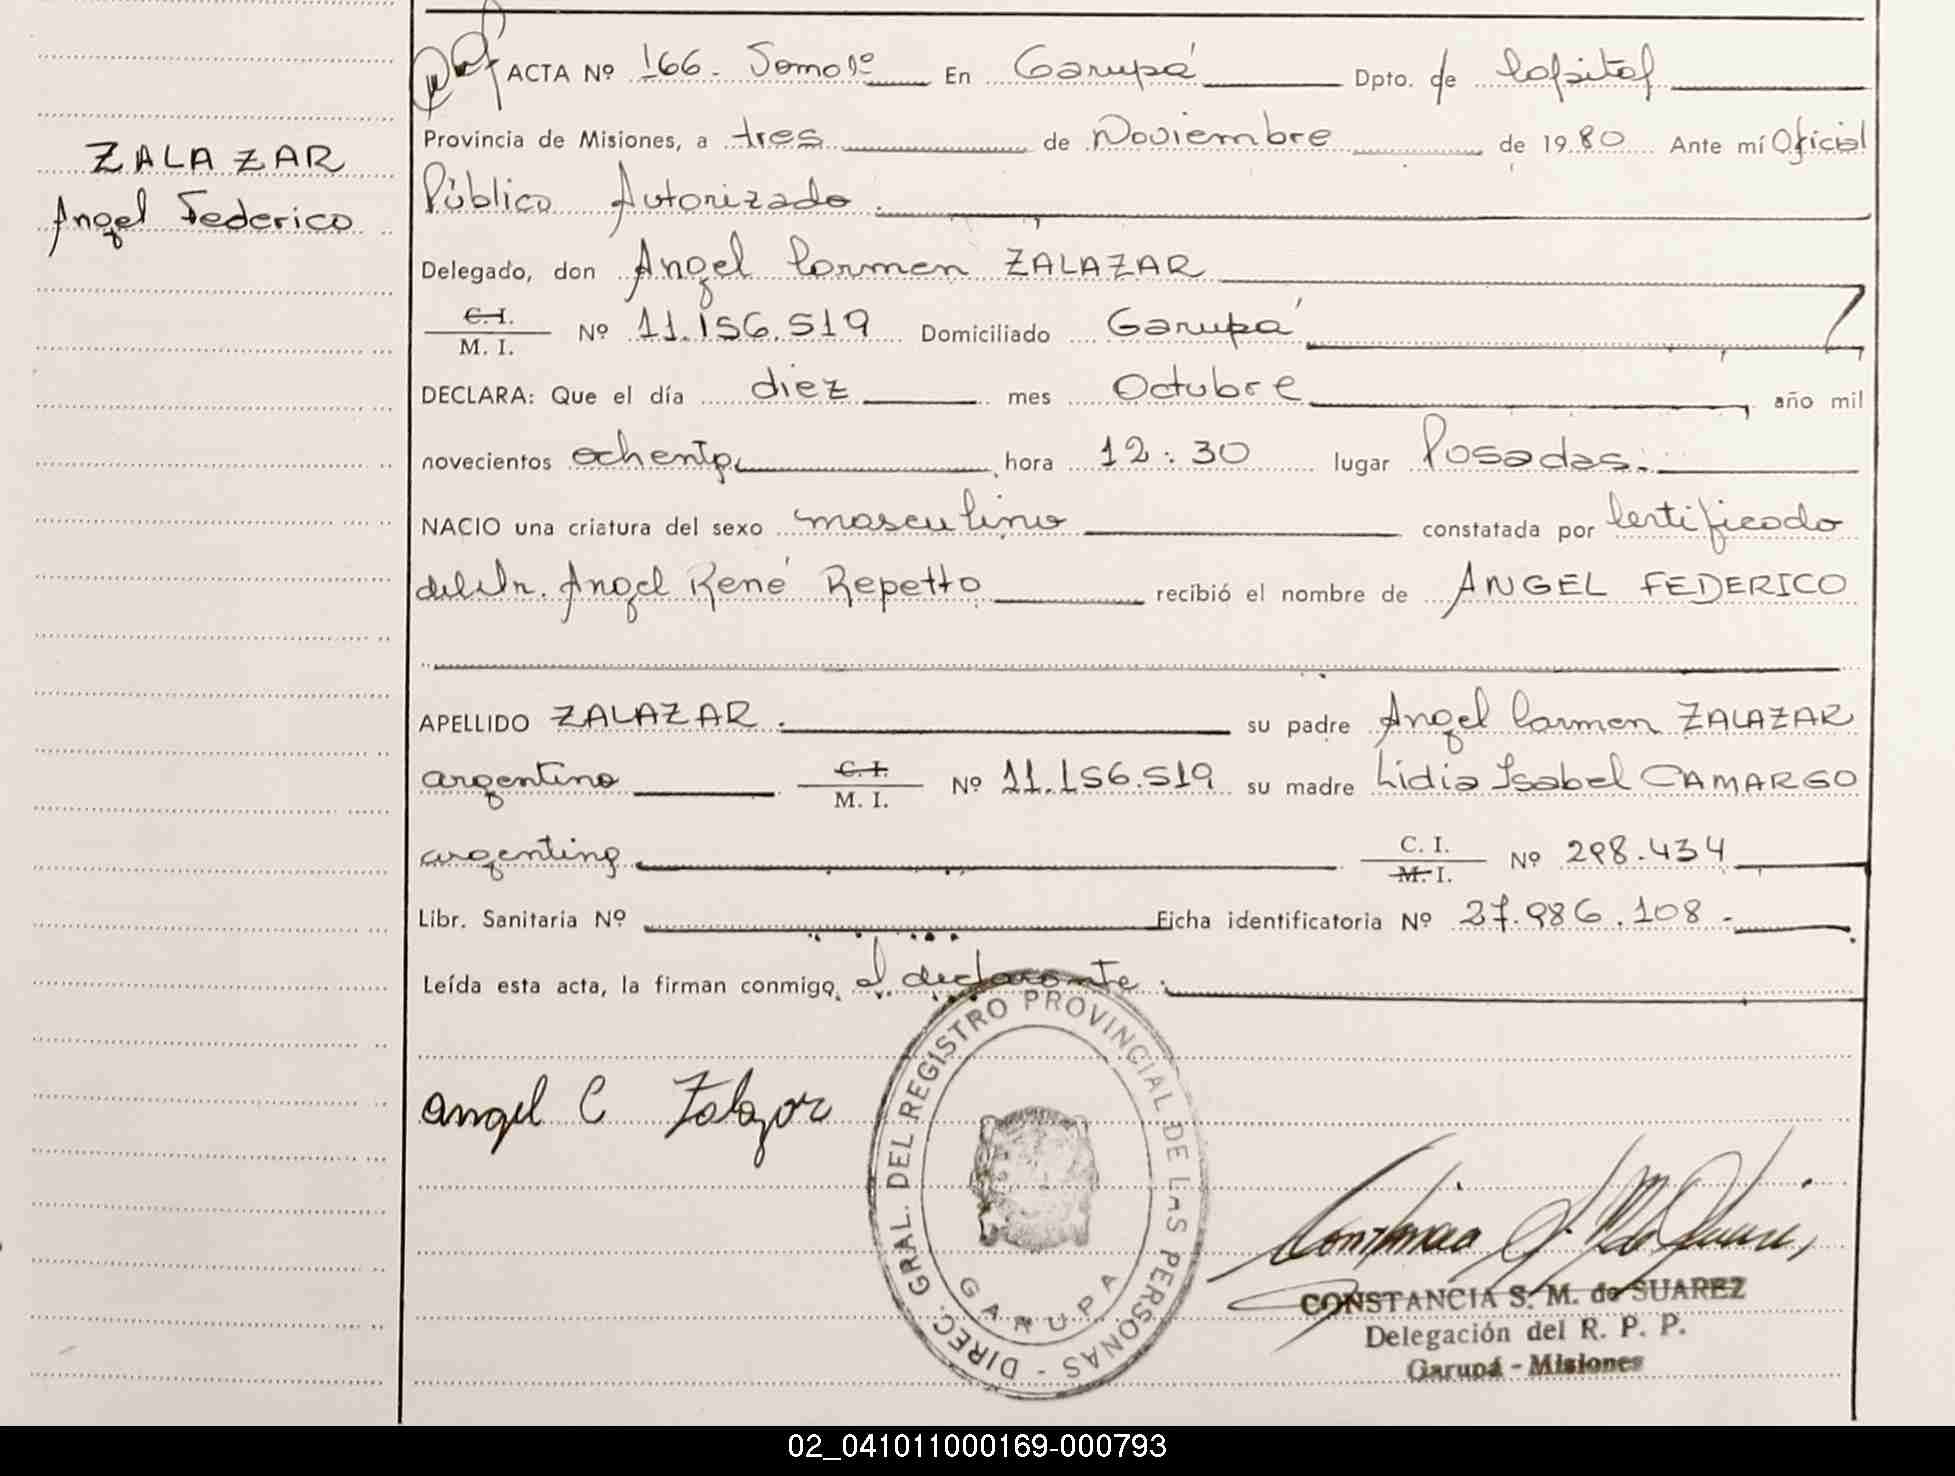 ACTA Nº 166. Tomo 1º En Garupá Dpto. de Capital
Provincia de Misiones, a tres de Noviembre de 1980 Ante mí Oficial
ZALAZAR
Angel Federico
Público Autorizado.
Delegado, don Angel Carmen ZALAZAR
C. I.
M. I. Nº 11.156.519 Domiciliado Garupá
DECLARA: Que el día diez mes Octubre año mil
novecientos ochenta, hora 12:30 lugar Posadas.
NACIO una criatura del sexo masculino constatada por Certificado
del Dr. Angel René Repetto recibió el nombre de ANGEL FEDERICO
APELLIDO ZALAZAR. su padre Angel Carmen ZALAZAR
argentino C. I.
M. I. Nº 11.156.519 su madre Lidia Isabel CAMARGO
argentina C. I.
M. I. Nº 298.434
Libr. Sanitaria Nº Ficha identificatoria Nº 27.986.108.-
Leída esta acta, la firman conmigo, el declarante.
Angel C Zalazar
DIREC. GRAL. DEL REGISTRO PROVINCIAL DE LAS PERSONAS -
GARUPA
CONSTANCIA S. M. de SUAREZ
Delegación del R. P. P.
Garupá - Misiones
02_041011000169-000793